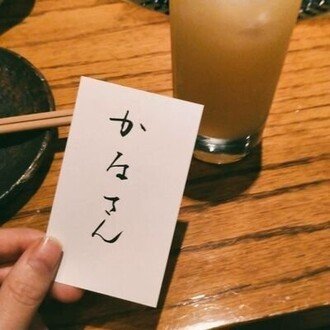 かなさん